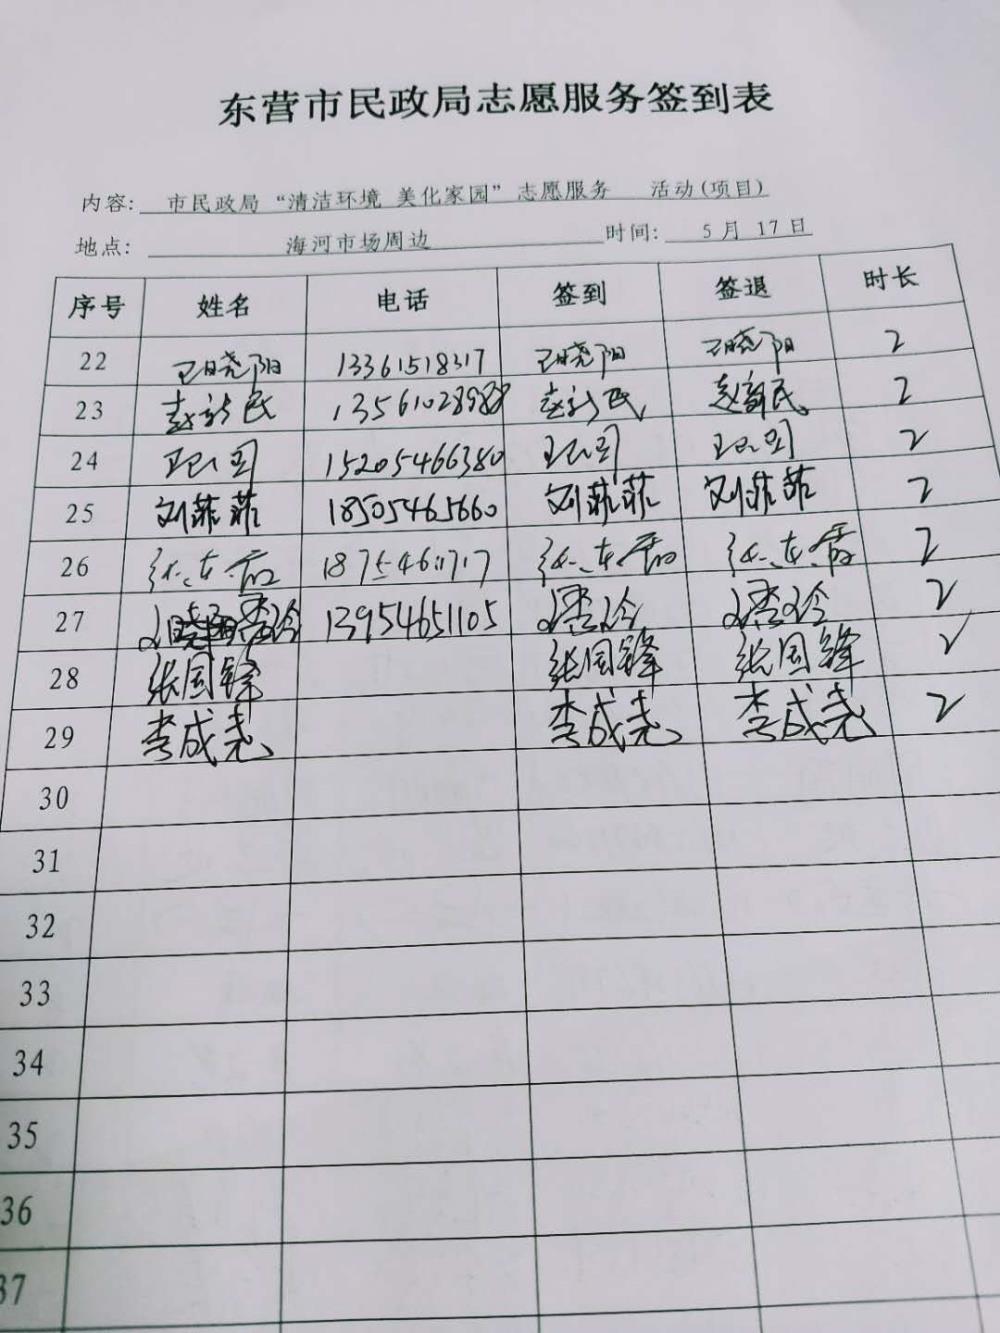 东营市民政局志愿服务签到表
内容: 市民政局“清洁环境 美化家园”志愿服务 活动(项目)
地点: 海河市场周边 时间: 5月17日
序号 姓名 电话 签到 签退 时长
22 王晓阳 13361518317 王晓阳 王晓阳 2
23 赵新民 赵新民 赵新民 2
24 15205466380 2
25 刘菲菲 18505465660 刘菲菲 刘菲菲 2
26 2
27 13954651105 2
28 张国锋 张国锋 张国锋 2
29 李成尧 李成尧 李成尧 2
30
31
32
33
34
35
36
37